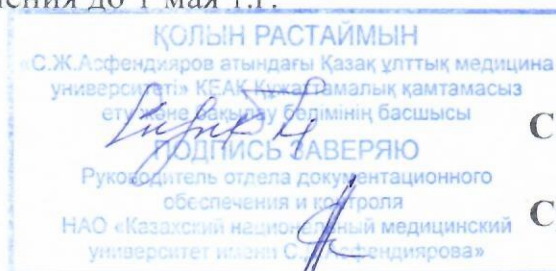 ения до 1 мая т.г.
ҚОЛЫН РАСТАЙМЫН
«С.Ж.Асфендияров атындағы Қазақ ұлттық медицина
университеті» КЕАҚ Құжаттамалық қамтамасыз
ету және бақылау бөлімінің басшысы
С
ПОДПИСЬ ЗАВЕРЯЮ
Руководитель отдела документационного
обеспечения и контроля
С
НАО «Казахский национальный медицинский
университет имени С.Д.Асфендиярова»